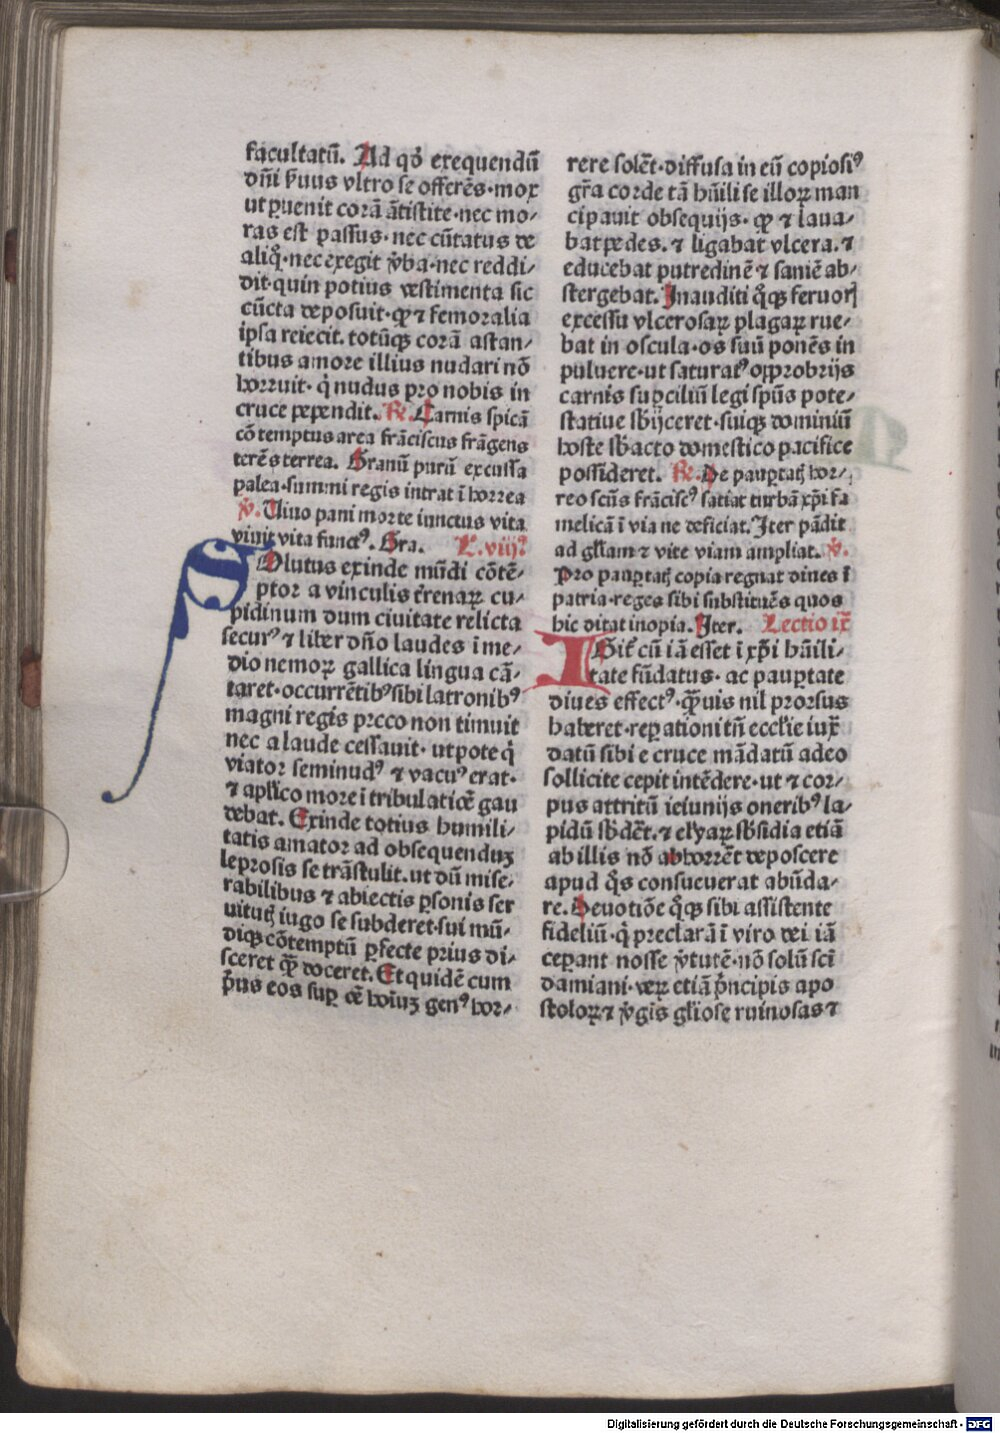 facultatū. Ad qḋ exequendū
dn̄i ẜuus vltro se offerēs·mox
ut ꝑuenit corā ātistite·nec mo⸗
ras est passus·nec cūtatus de
aliq̊·nec exegit v̓ba·nec reddi⸗
dit·quin potius vestimenta sic
cūcta deposuit·ꝙ ⁊ femoralia
ipsa reiecit. totūqꝫ corā astan⸗
tibus amore illius nudari nō
horruit· q̇ nudus pro nobis in
cruce pependit. R̄. Carnis spicā
cōtemptus area frāciscus frāgens
terēs terrea. Granū purū excussa
palea·summi regis intrat ī horrea
v̓. Uiuo pani morte iunctus vita
viuit vita funct⁹. Gra. L. viij⁹
Solutus exinde mūdi cōtē⸗
ptor a vinculis t̓renaꝝ cu⸗
pidinum dum ciuitate relicta
secur⁹ ⁊ liber dn̄o laudes ī me⸗
dio nemoꝝ gallica lingua cā⸗
taret·occurrētib⁹ sibi latronib⁹
magni regis preco non timuit
nec a laude cessauit· utpote q̇
viator seminud⁹ ⁊ vacu⁹ erat·
⁊ apl̄ico more ī tribulatiōe gau
debat. Exinde totius humili⸗
tatis amator ad obsequenduꝫ
leprosis se trāstulit. ut dū mise⸗
rabilibus ⁊ abiectis ꝑsonis ser
uitutꝭ iugo se subderet·sui mū⸗
diqꝫ cōtemptū ꝑfecte prius di⸗
sceret qꝫ̄ doceret. Et quidē cum
p̓us eos suꝑ oē hoīuꝫ gen⁹ hor⸗
rere solēt·diffusa in eū copiosi⁹
gr̄a corde tā hūili se illoꝝ man
cipauit obsequijs· ꝙ ⁊ laua⸗
bat pedes. ⁊ ligabat vlcera. ⁊
educebat putredinē ⁊ saniē ab⸗
stergebat. Inauditi q̊qꝫ feruorꝭ
excessu vlcerosaꝝ plagaꝝ rue⸗
bat in oscula·os suū ponēs in
puluere·ut saturat⁹ opprobrijs
carnis suꝑciliū legi spūs pote⸗
statiue sb̄ijceret·suiqꝫ dominiū
hoste sb̄acto domestico pacifice
possideret. R̄. De pauꝑtatꝭ hor⸗
reo scūs frācisc⁹ satiat turbā xp̄i fa
melicā ī via ne deficiat. Iter pādit
ad gl̄iam ⁊ vite viam ampliat. v̓.
Pro pauꝑtatꝭ copia regnat diues ī
patria·reges sibi substituēs quos
hic ditat inopia. Iter. Lectio ix̄
Igit̓ cū iā esset ī xp̄i hūili⸗
tate fūdatus· ac pauꝑtate
diues effect⁹· qꝫ̄uis nil prorsus
haberet·reꝑationi tn̄ eccl̄ie iux̄
datū sibi e cruce mādatū adeo
sollicite cepit intēdere·ut ⁊ cor⸗
pus attritū ieiunijs onerib⁹ la⸗
pidū sb̄dēt. ⁊ elyaꝝ sb̄sidia etiā
ab illis nō abhorrēt deposcere
apud q̊s consueuerat abūda⸗
re. Deuotiōe q̊qꝫ sibi assistente
fideliū· q̇ preclarā ī viro dei iā
ceperant nosse v̓tutē·nō solū sc̄i
damiani·veꝝ etiā p̓ncipis apo
stoloꝝ ⁊ v̓gis gl̄iose ruinosas ⁊
Digitalisierung gefördert durch die Deutsche Forschungsgemeinschaft - DFG